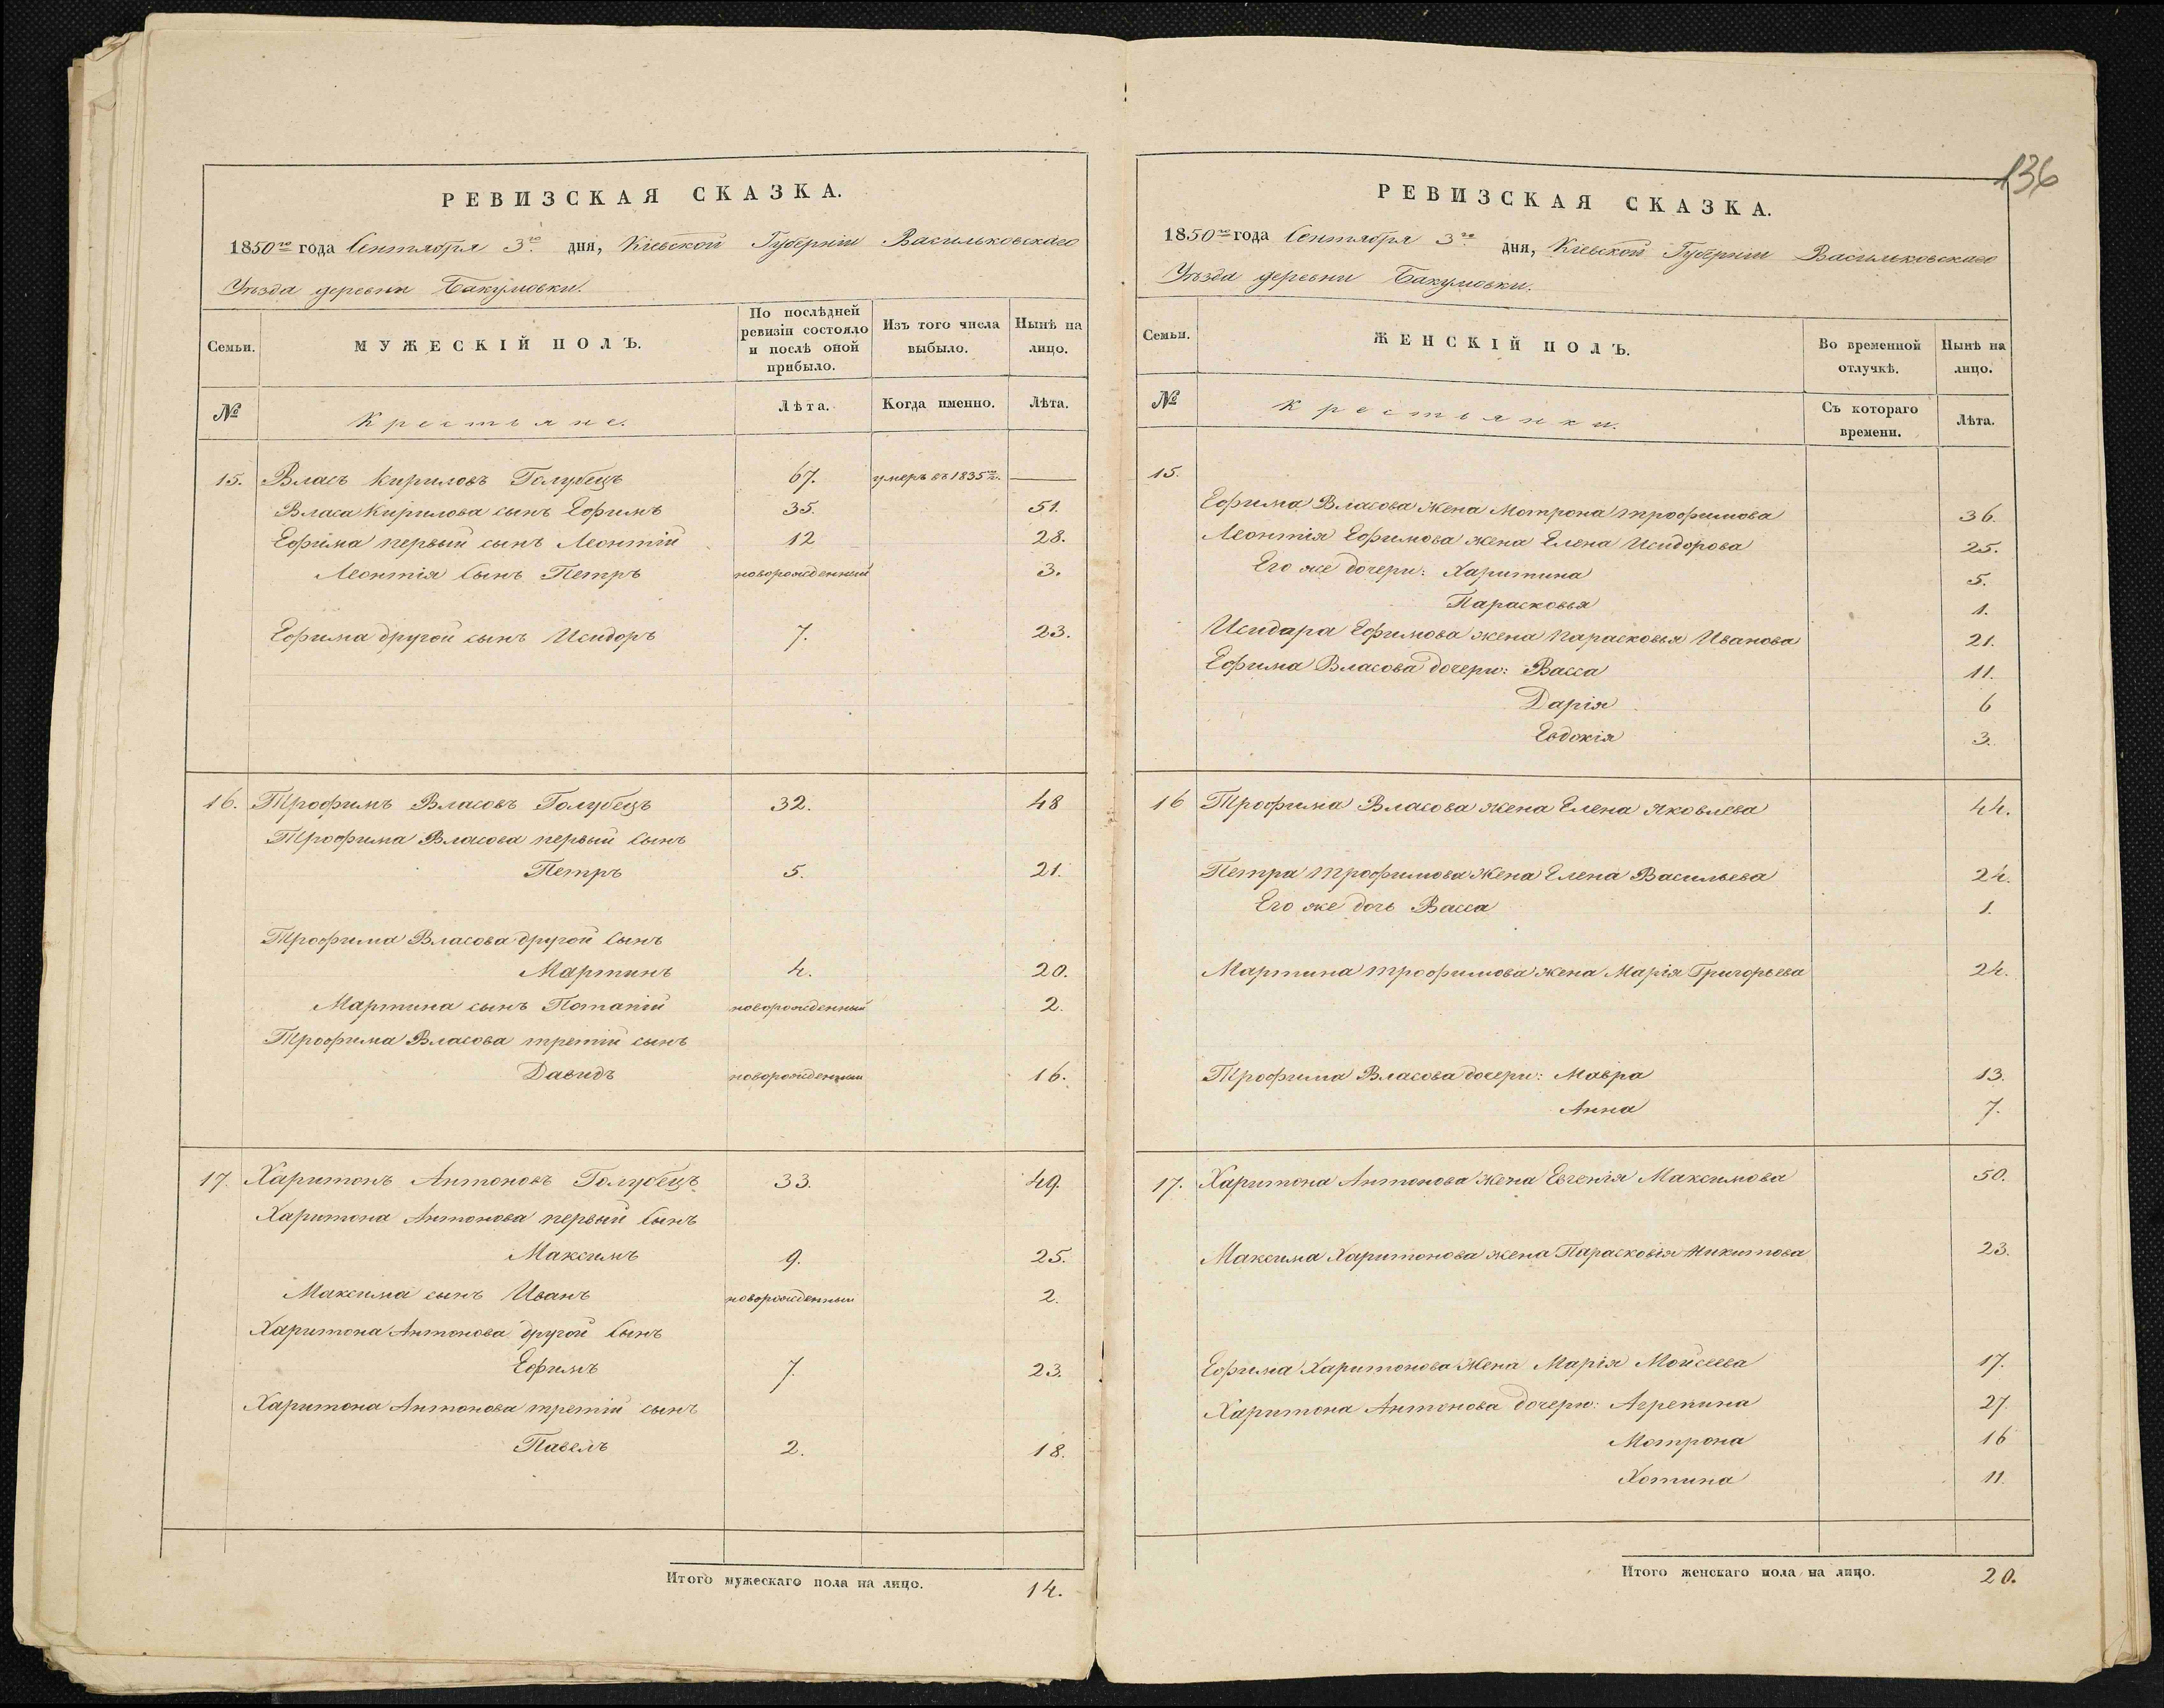 РЕВИЗСКАЯ СКАЗКА.
1850го года Сентября 3го дня, Кіевской Губерніи Васильковскаго
Уѣзда деревни Бакумовки.
Семьи.
МУЖЕСКІЙ ПОЛЪ.
По послѣдней ревизіи состояло и послѣ оной прибыло.
Изъ того числа выбыло.
Нынѣ на лицо.
№
Крестьяне.
Лѣта.
Когда именно.
Лѣта.
15. Власъ Кириловъ Голубецъ 67. умеръ въ 1835мъ. —
Власа Кирилова сынъ Ефимъ 35. 51.
Ефима первый сынъ Леонтій 12 28.
Леонтія сынъ Петръ новорожденный 3.
Ефима другой сынъ Исидоръ 7. 23.
16. Трофимъ Власовъ Голубецъ 32. 48
Трофима Власова первый сынъ
Петръ 5. 21.
Трофима Власова другой сынъ
Мартинъ 4. 20.
Мартина сынъ Потапій новорожденный 2.
Трофима Власова третій сынъ
Давидъ новорожденный 16.
17. Харитонъ Антоновъ Голубецъ 33. 49.
Харитона Антонова первый сынъ
Максимъ 9. 25.
Максима сынъ Иванъ новорожденный 2.
Харитона Антонова другой сынъ
Ефимъ 7. 23.
Харитона Антонова третій сынъ
Павелъ 2. 18.
Итого мужескаго пола на лицо. 14.
136
РЕВИЗСКАЯ СКАЗКА.
1850го года Сентября 3го дня, Кіевской Губерніи Васильковскаго
Уѣзда деревни Бакумовки.
Семьи.
ЖЕНСКІЙ ПОЛЪ.
Во временной отлучкѣ.
Нынѣ на лицо.
№
Крестьянки.
Съ котораго времени.
Лѣта.
15.
Ефима Власова жена Мотрона Трофимова 36.
Леонтія Ефимова жена Елена Исидорова 25.
Его же дочери: Харитина 5.
Парасковья 1.
Исидара Ефимова жена Парасковья Иванова 21.
Ефима Власова дочери: Васса 11.
Дарія 6
Евдокія 3.
16 Трофима Власова жена Елена Яковлева 44.
Петра Трофимова жена Елена Васильева 24.
Его же дочь Васса 1.
Мартина Трофимова жена Марія Григорьева 24.
Трофима Власова дочери: Мавра 13.
Анна 7.
17. Харитона Антонова жена Евгенія Максимова 50.
Максима Харитонова жена Парасковія Никитова 23.
Ефима Харитонова жена Марія Мойсеева 17.
Харитона Антонова дочери: Агрепина 27.
Мотрона 16
Хотина 11.
Итого женскаго пола на лицо. 20.